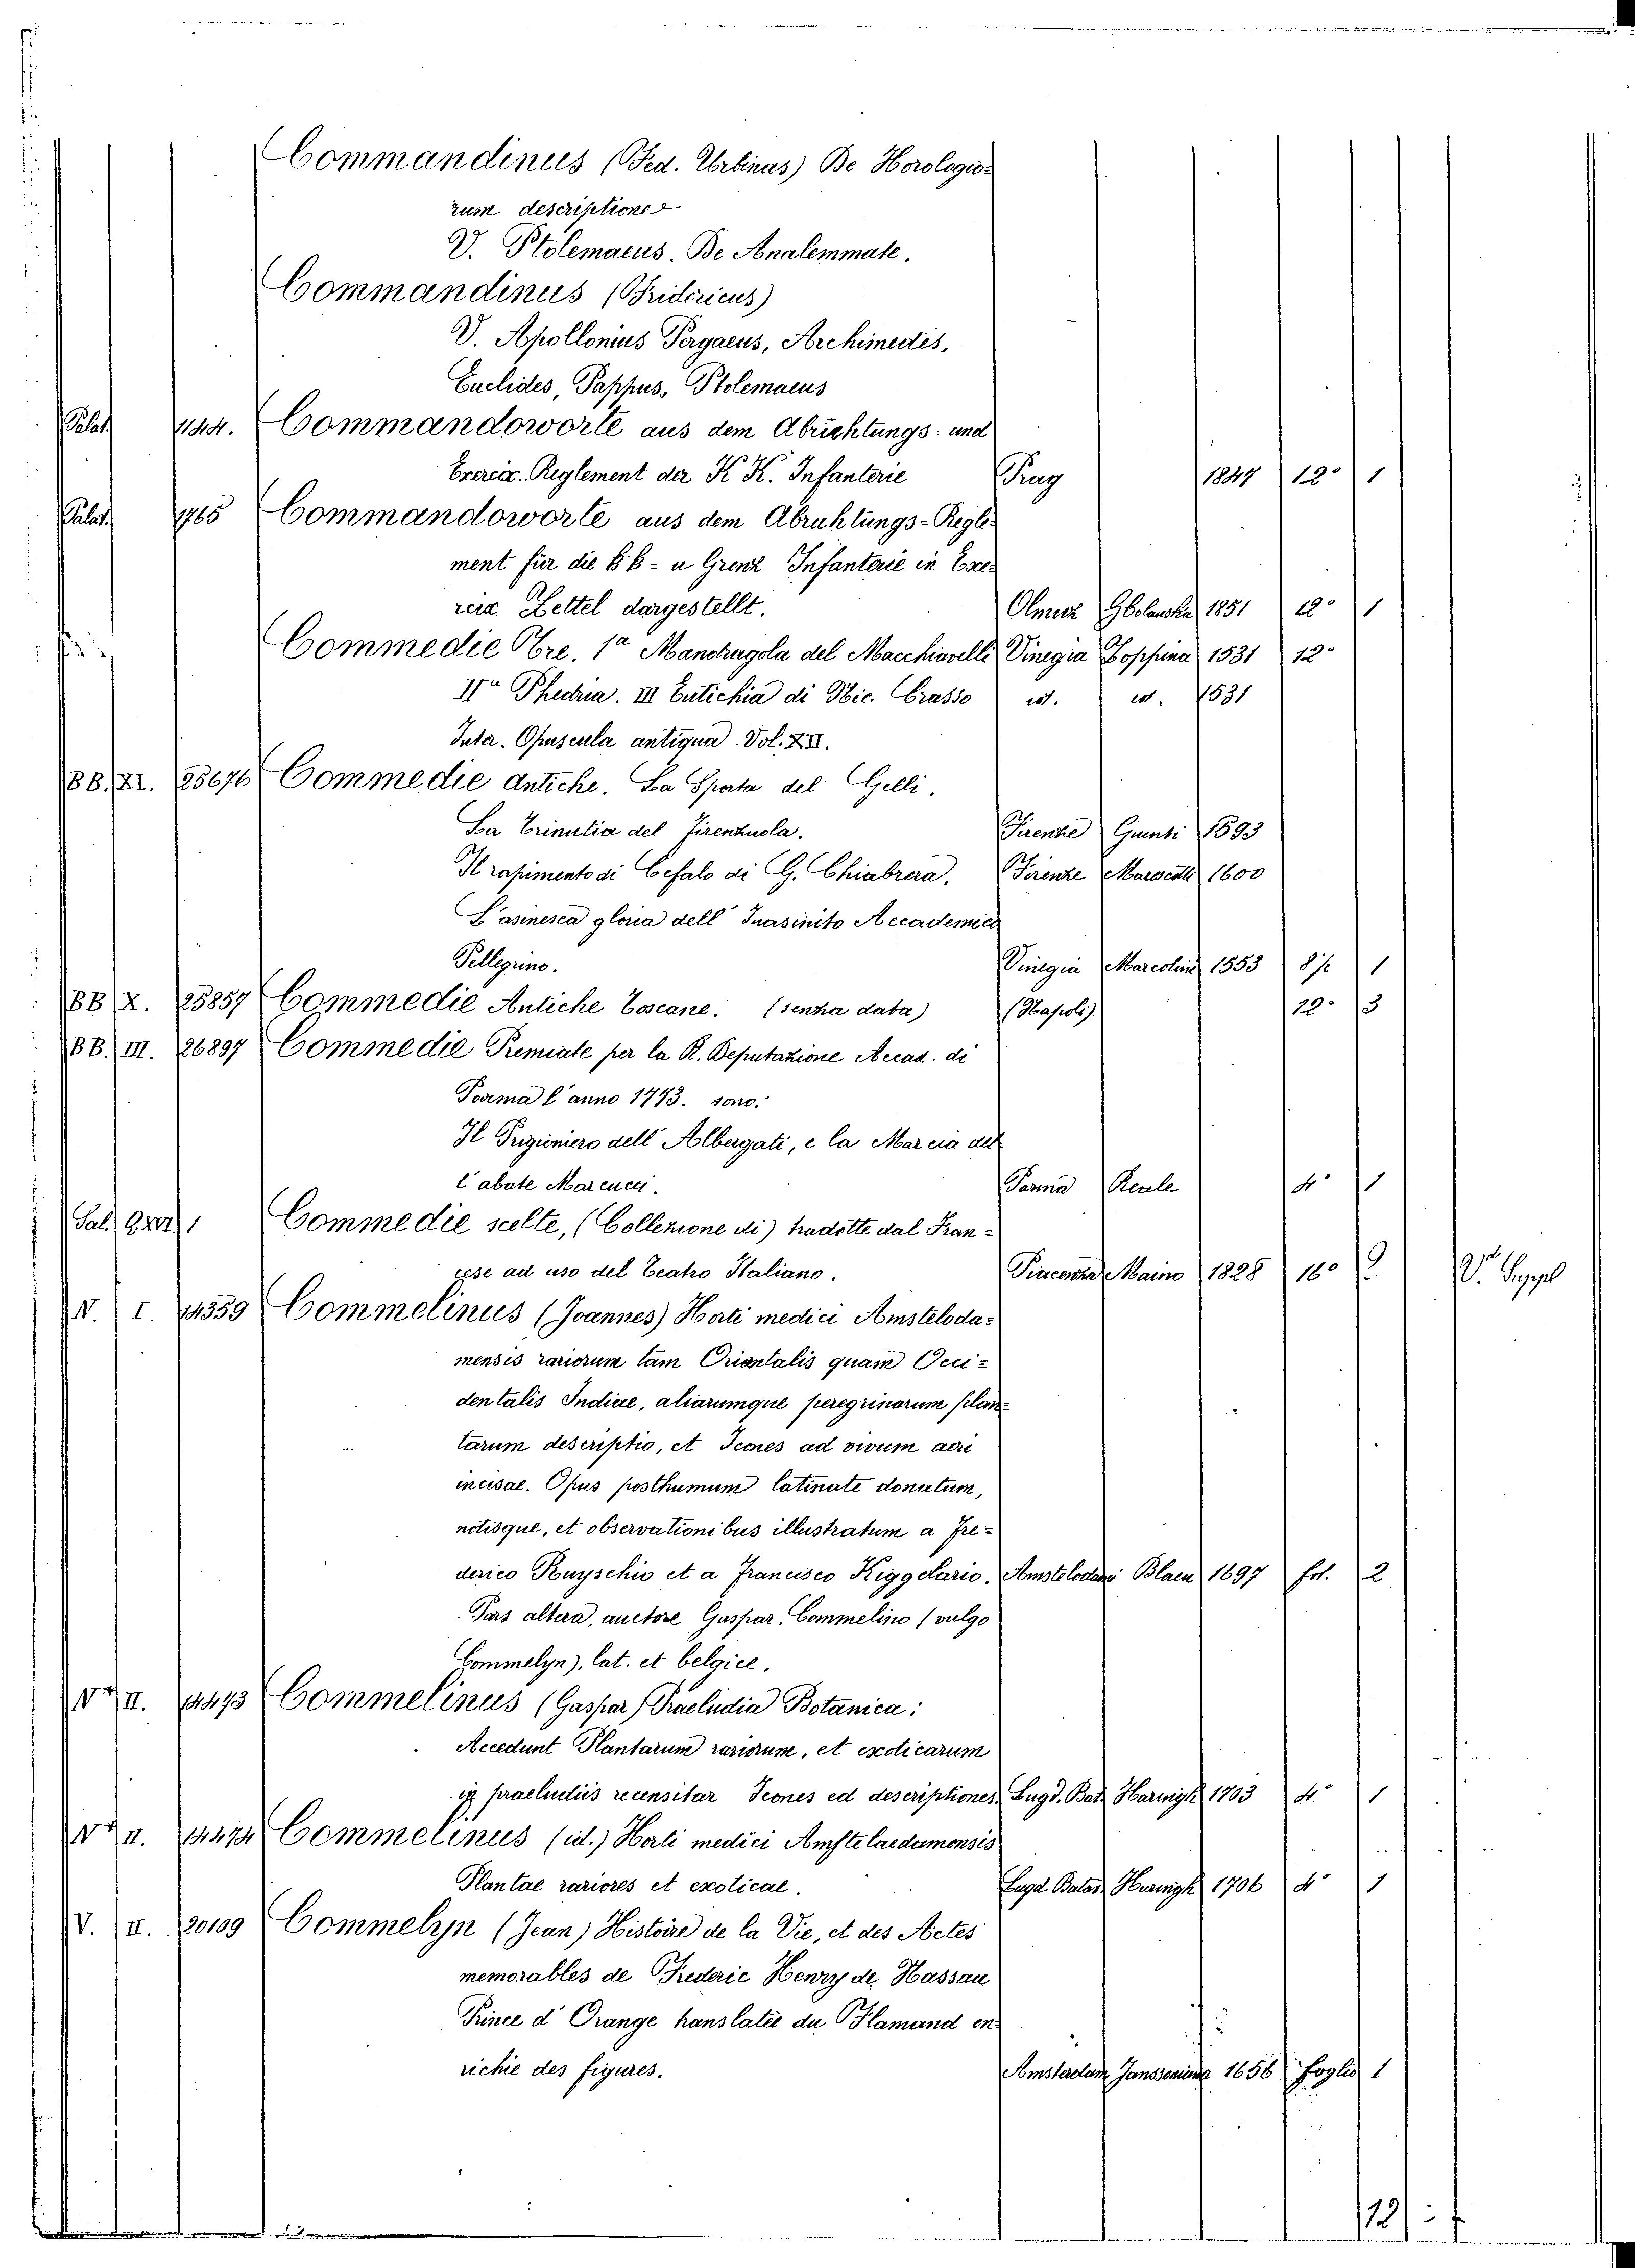 Commandinus (Fed. Urbinas) De Horologio-
rum descriptione
V. Ptolemaeus. De Analemmate.
Commandinus (Fridericus)
V. Apollonius Pergaeus, Archimedes,
Euclides, Pappus, Ptolemaeus
Palat. 1144. Commandoworte aus dem Abrichtungs- und
Exerciz. Reglement der K. K. Infanterie Prag 1847 12° 1
Palat. 1765 Commandoworte aus dem Abrichtungs-Regle-
ment für die k k - u Grenz Infanterie in Exer-
reiz Zettel dargestellt. Olmuz 1851 12° 1
Commedie Tre. 1a Mandragola del Macchiavelli Vinegia Zoppina 1531 12°
IIa Phedria. III Eutichia di Nic. Grasso id. id. 1531
Inter. Opuscula antiqua Vol. XII.
BB. XI. 25676 Commedie antiche. La Sporta del Gelli.
La Trinutia del Firenzuola. Firenze Giunti 1593
Il rapimento di Cefalo di G. Chiabrera. Firenze Marescotti 1600
L'asinesca gloria dell' Inasinito Accademico
Pellegrino. Vinegia Marcolini 1553 8° 1
BB X. 25857 Commedie Antiche Toscane. (senza data) (Napoli) 12° 3
BB. III. 26897 Commedie Premiate per la R. Deputazione Accad. di
Parma l'anno 1773. sono:
Il Prigioniero dell' Albergati, e la Marcia del-
l'abate Marcucci. Parma Reale 4° 1
Pal. 1 Commedie scelte, (Collezione di) tradotte dal Fran-
cese ad uso del Teatro Italiano. Piacenza Maino 1828 16° 9 V. Suppl
N. I. 14359 Commelinus (Joannes) Horti medici Amsteloda-
mensis rariorum tam Orientalis quam Occi-
dentalis Indiae, aliarumque peregrinarum plan-
tarum descriptio, et Icones ad vivum aeri
incisae. Opus posthumum latinate donatum,
notisque, et observationibus illustratum a Fre-
derico Ruyschio et a Francisco Kiggelario. Amstelodami Blaeu 1697 fol. 2
Pars altera, auctore Gaspar. Commelino (vulgo
Commelyn). lat. et belgice.
N II. 14473 Commelinus (Gaspar) Praeludia Botanica:
Accedunt Plantarum rariorum, et exoticarum
in praeludiis recensitar Icones ed descriptiones. Lugd. Bat. Haringk 1703 4° 1
N II. 14474 Commelinus (id.) Horti medici Amstelaedamensis
Plantae rariores et exoticae. Lugd. Batav. Haringk 1706 4° 1
V. II. 20109 Commelyn (Jean) Histoire de la Vie, et des Actes
memorables de Frederic Henry de Nassau
Prince d'Orange translatée du Flamand en-
richie des figures. Amsterdam Janssoniana 1656 foglio 1
12